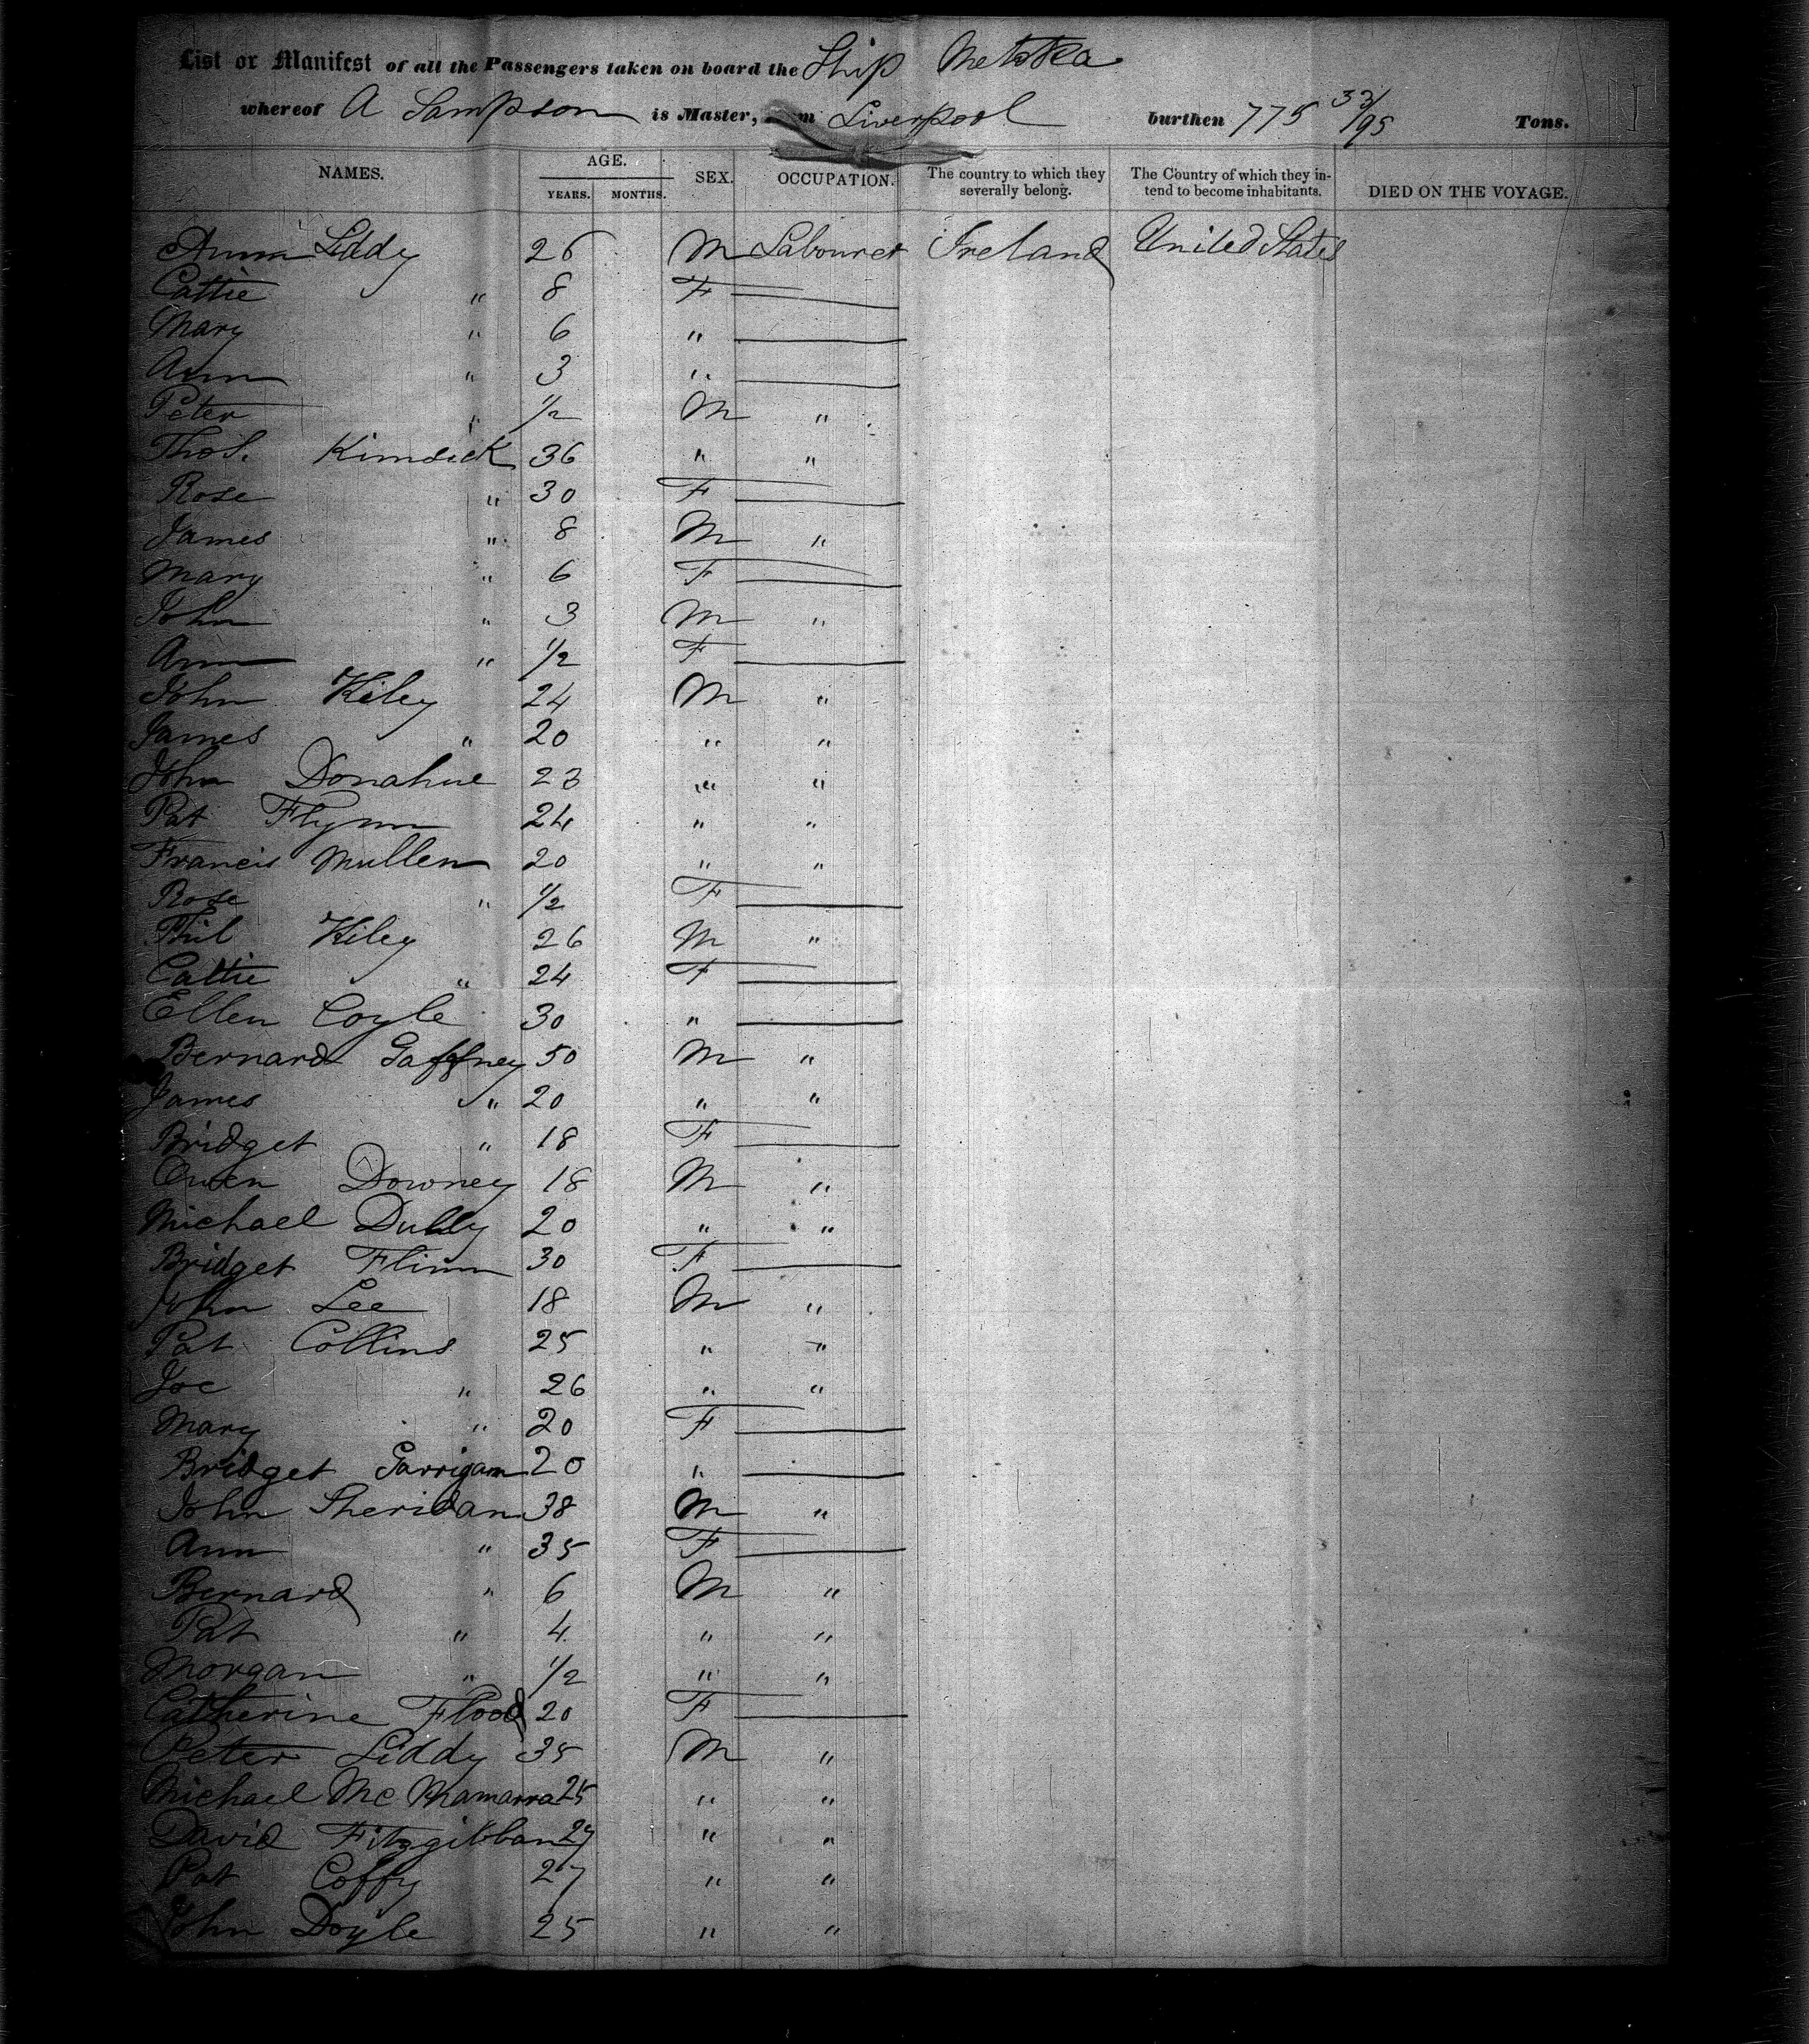 List or Manifest of all the Passengers taken on board the Ship Metoka
whereof A Sampson is Master, from Liverpool burthen 775 33/95 Tons.
NAMES. AGE. YEARS. MONTHS. SEX. OCCUPATION. The country to which they severally belong. The Country of which they intend to become inhabitants. DIED ON THE VOYAGE.
Ann Liddy 26 M Labourer Ireland United States
Cattie " 8 F
Mary " 6 "
Ann " 3 "
Peter " 1/2 M "
Thos. Kimsick 36 " "
Rose " 30 F
James " 8 M "
Mary " 6 F
John " 3 M "
Ann " 1/2 F
John Kiley 24 M "
James " 20 " "
John Donahue 23 " "
Pat Flynn 24 " "
Francis Mullen 20 " "
Rose " 1/2 F
Phil Kiley 26 M "
Cattie " 24 F
Ellen Coyle 30 "
Bernard Gaffney 50 M "
James " 20 " "
Bridget " 18 F
Owen Downey 18 M "
Michael Dully 20 " "
Bridget Flinn 30 F
John Lee 18 M "
Pat Collins 25 " "
Joe " 26 " "
Mary " 20 F
Bridget Garrigan 20 "
John Sheridan 38 M "
Ann " 35 F
Bernard " 6 M "
Pat " 4 " "
Morgan " 1/2 " "
Catherine Flood 20 F
Peter Liddy 35 M "
Michael Mc Mamarra 25 " "
David Fitzgibban 27 " "
Pat Coffy 27 " "
John Doyle 25 " "